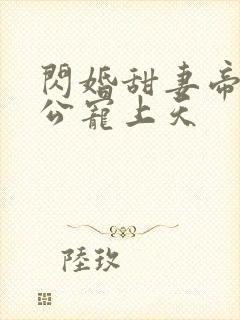 閃婚甜妻帝
公寵上天
陸玖